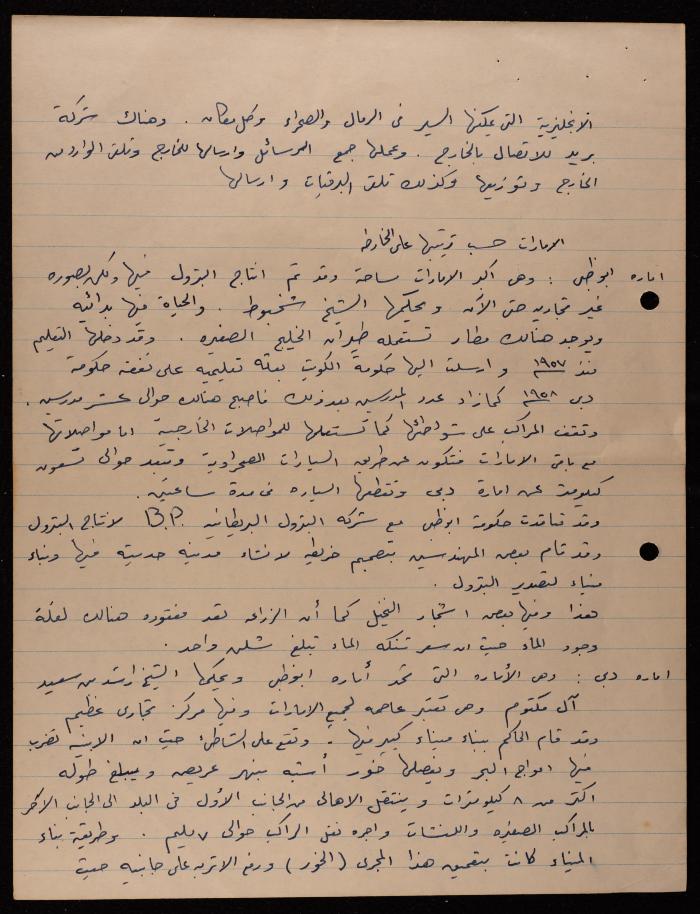 الانجليزية التي يمكنها السير في الرمال والصحراء وكل مكان . وهناك شركة
بريد للاتصال بالخارج . وعملها جمع الرسائل وارسالها للخارج وتلقى الوارد من
الخارج وتوزيعها وكذلك تلقى البرقيات وارسالها
الامارات حسب ترتيبها على الخارطه
اماره ابوظبي : وهي اكبر الامارات ساحة وقد تم انتاج البترول فيها ولكن بصوره
غير تجاريه حتى الآن ويحكمها الشيخ شخبوط . والحياة فيها بدائيه
ويوجد هنالك مطار تستعمله طيران الخليج الصغيره . وقد دخلها التعليم
منذ ١٩٥٧ وارسلت اليها حكومة الكويت بعثه تعليميه على نفقة حكومة
دبى ١٩٥٨ كما زاد عدد المدرسين بعد ذلك فاصبح هنالك حوالى عشر مدرسين .
وتقف المراكب على شواطئها كما تستعملها للمواصلات الخارجية اما مواصلاتها
مع باقى الامارات فتكون عن طريق السيارات الصحراوية وتبعد حوالى تسعون
كيلومتر عن امارة دبى وتقطعها السياره فى مدة ساعتين .
وقد تعاقدت حكومة ابوظبى مع شركه البترول البريطانيه B.P. لانتاج البترول
وقد قام بعض المهندسين بتصميم خريطه لانشاء مدينه حديثه فيها وبناء
ميناء لتصدير البترول .
هذا وفيها بعض اشجار النخيل كما أن الزراعه تعد مفقوده هنالك لقلة
وجود الماء حيث ان سعر تنكه الماء تبلغ شلن واحد .
اماره دبى : وهى الأماره التى تحد أماره ابوظبى ويحكمها الشيخ راشد بن سعيد
آل مكتوم وهى تعتبر عاصمه لجميع الامارات وفيها مركز تجارى عظيم
وقد قام الحاكم ببناء ميناء كبير فيها . وتقع على الشاطئ حيث ان الابنيه تضرب
فيها امواج البحر ويفصلها خور أشبه بنهر عريض ويبلغ طوله
اكثر من ٨ كيلومترات وينتقل الاهالى من الجانب الأول فى البلد الى الجانب الاخر
بالمراكب الصغيره واللنشات واجره نقل الراكب حوالى ٧ مليم . وطريقة بناء
الميناء كانت بتعميق هذا المجرى (الخور) ورفع الاتربه على جانبيه حيث